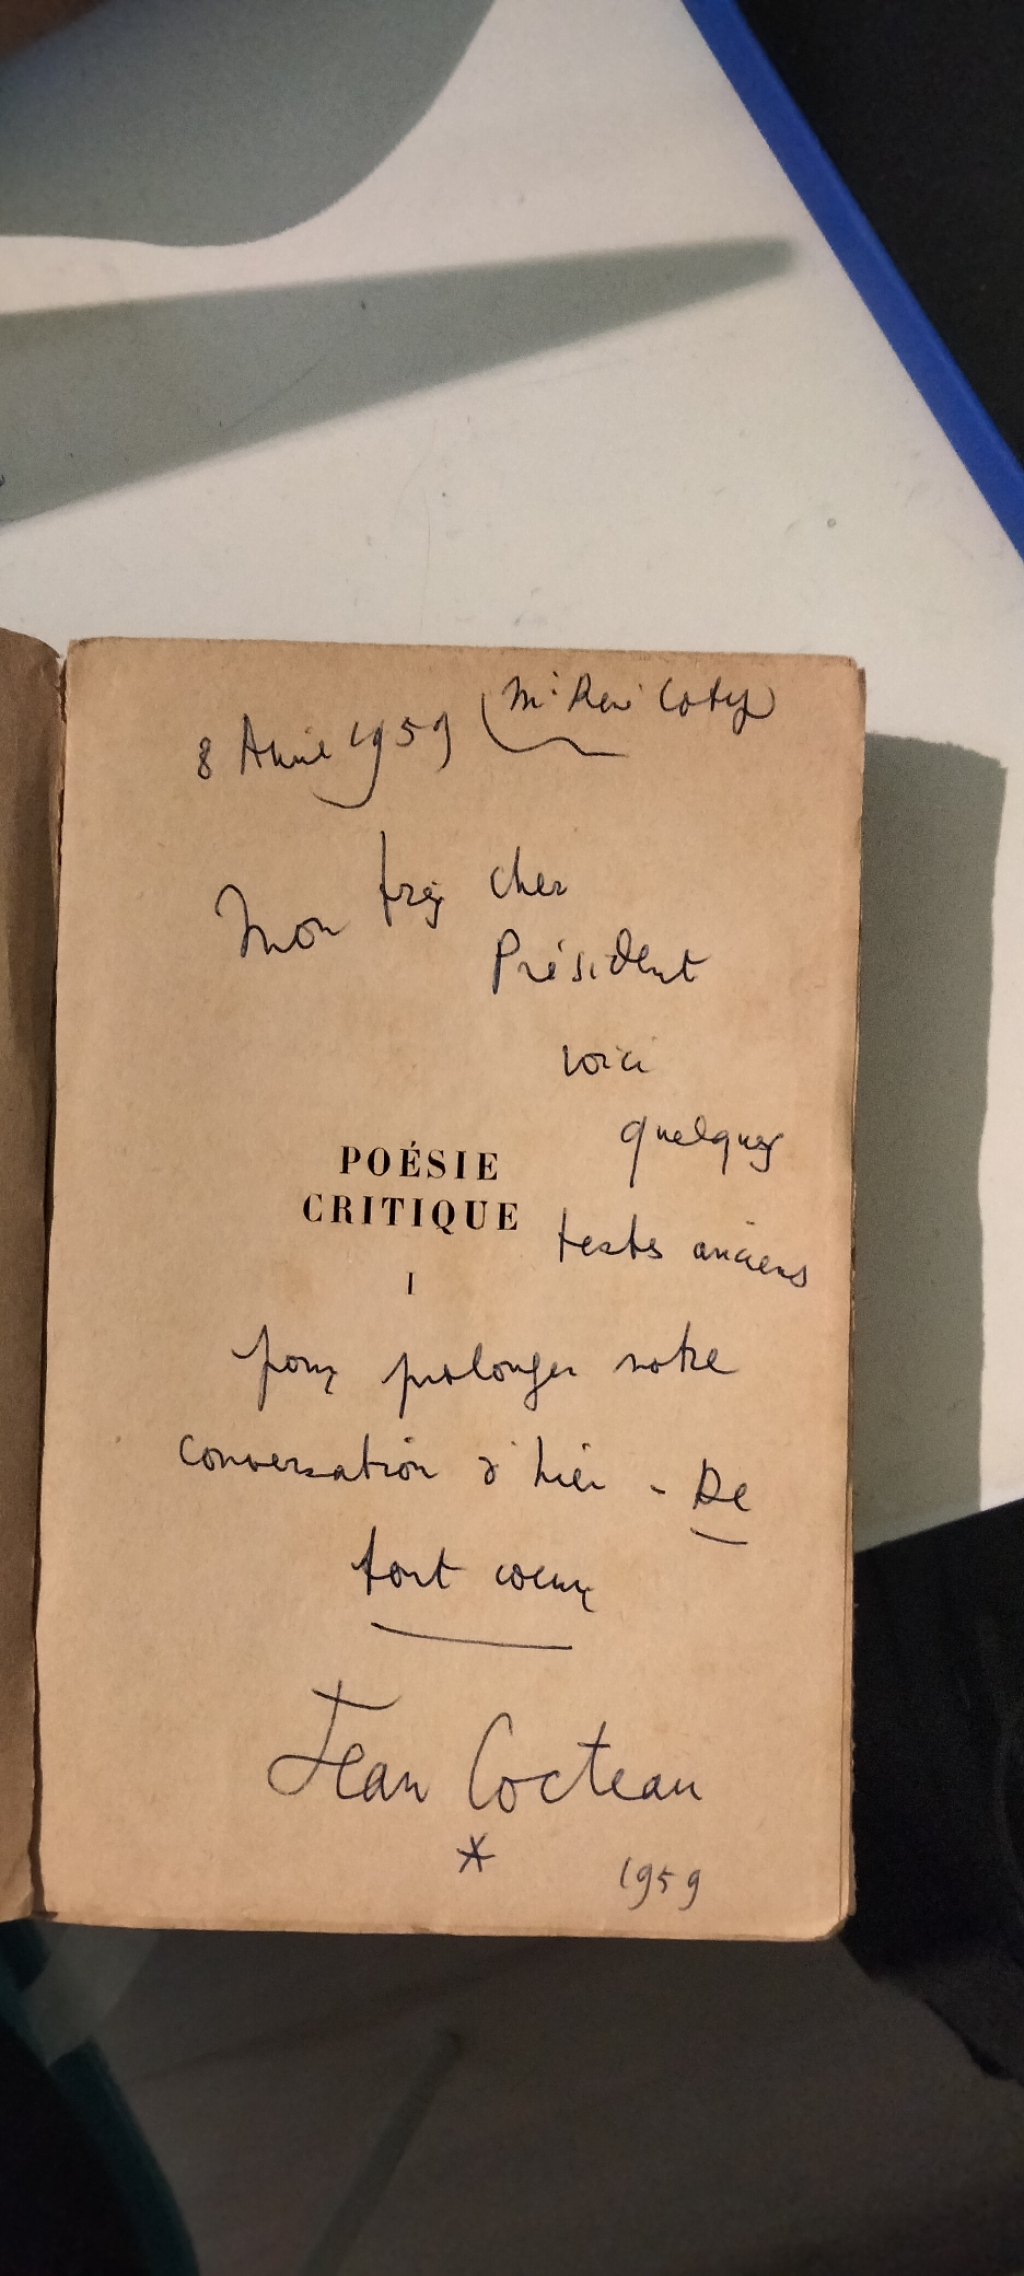 8 Avril 1959 (Mr René Coty)
Mon très cher
Président
voici
quelques
POÉSIE
CRITIQUE
textes anciens
I
pour prolonger notre
conversation d'hier - De
tout coeur
Jean Cocteau
* 1959